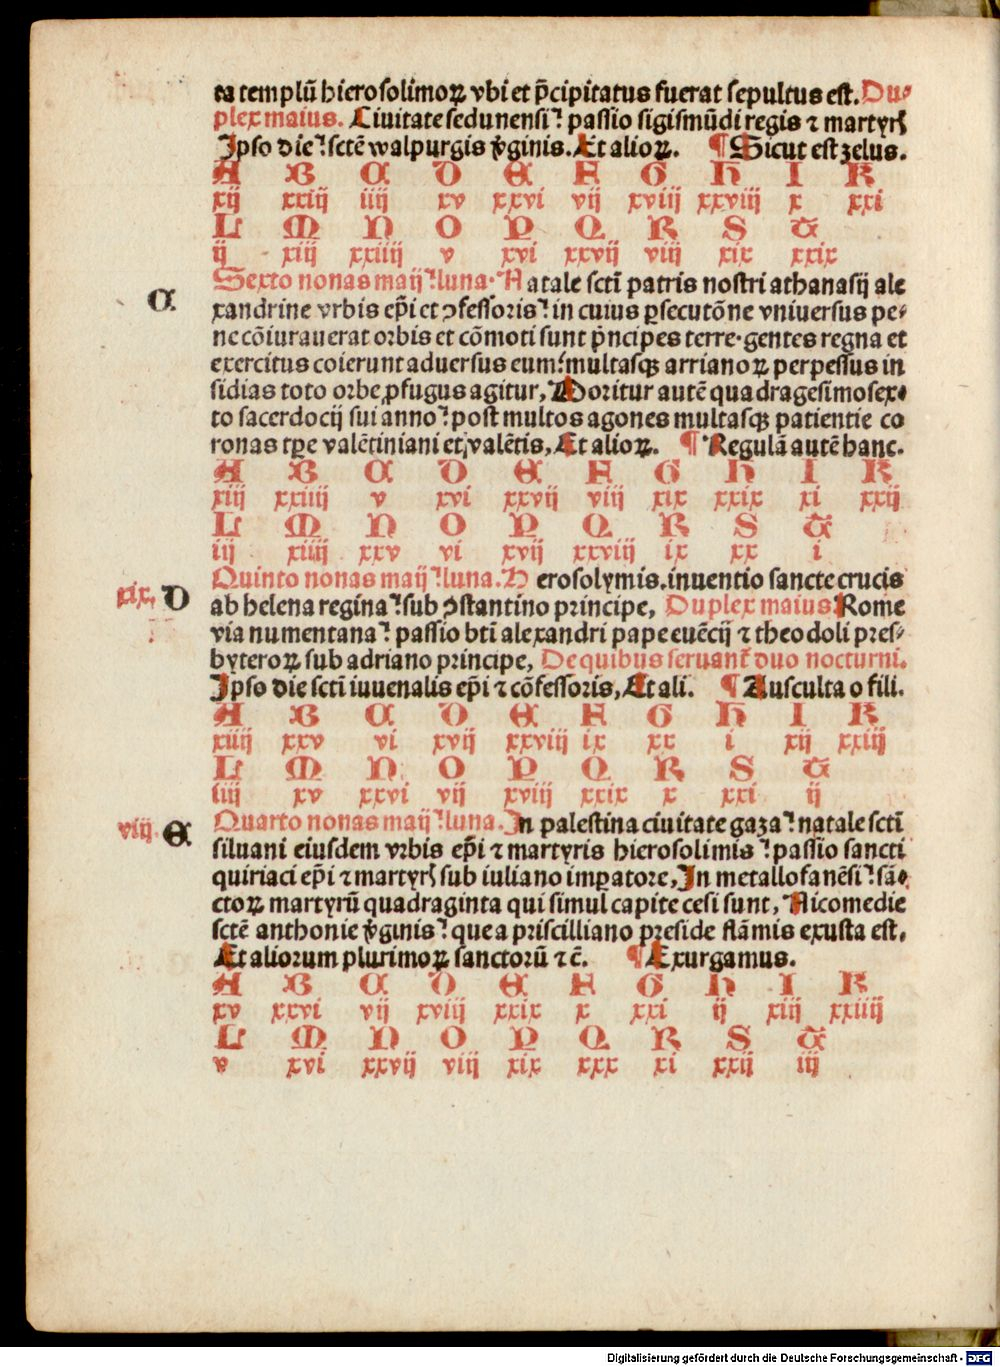 ta templū hierosolimoꝝ vbi et p̄cipitatus fuerat sepultus est. Du⸗
plex maius. Ciuitate sedunensi? passio sigismūdi regis ⁊ martyrꝭ
Ipso die? sctē walpurgis v̄ginis. Et alioꝝ. ¶ Sicut est zelus.
A B C D E F G H I K
xij xxiij iiij xv xxvi vij xviij xxviij x xxi
L M N O P Q R S T
ij xiij xxiiij v xvi xxvij viij xix xxix
Sexto nonas maij? luna. Natale scti patris nostri athanasij ale
C xandrine vrbis ep̄i et ɔfessoris? in cuius ꝑsecutōne vniuersus pe⸗
ne cōiurauerat orbis et cōmoti sunt p̄ncipes terre. gentes regna et
exercitus coierunt aduersus eum? multasqꝫ arrianoꝝ perpessus in
sidias toto orbe ꝓfugus agitur, Moritur autē quadragesimosex⸗
to sacerdocij sui anno? post multos agones multasqꝫ patientie co
ronas tꝑe valētiniani et valētis, Et alioꝝ. ¶ Regulā autē hanc.
A B C D E F G H I K
xiij xxiiij v xvi xxvij viij xix xxix xi xxij
L M N O P Q R S T
iij xiiij xxv vi xvij xxviij ix xx i
Quinto nonas maij? luna. Herosolymis. inuentio sancte crucis
xix. D ab helena regina? sub ɔstantino principe, Duplex maius. Rome
via numentana? passio bti alexandri pape euēcij ⁊ theodoli pres⸗
byteroꝝ sub adriano principe, De quibus seruant᷑ duo nocturni.
Ipso die scti iuuenalis ep̄i ⁊ cōfessoris, Et ali. ¶ Ausculta o fili.
A B C D E F G H I K
xiiij xxv vi xvij xxviij ix xx i xij xxiij
L M N O P Q R S T
iiij xv xxvi vij xviij xxix x xxi ij
viij. E Quarto nonas maij? luna. In palestina ciuitate gaza? natale scti
siluani eiusdem vrbis ep̄i ⁊ martyris hierosolimis? passio sancti
quiriaci ep̄i ⁊ martyrꝭ sub iuliano imꝑatore, In metallo fanēsi? sā⸗
ctoꝝ martyrū quadraginta qui simul capite cesi sunt, Nicomedie
sctē anthonie v̄ginis? que a priscilliano preside flāmis exusta est.
Et aliorum plurimoꝝ sanctorū ⁊ c̄. ¶ Exurgamus.
A B C D E F G H I K
xv xxvi vij xviij xxix x xxi ij xiij xxiiij
L M N O P Q R S T
v xvi xxvij viij xix xxx xi xxij iij
Digitalisierung gefördert durch die Deutsche Forschungsgemeinschaft - DFG